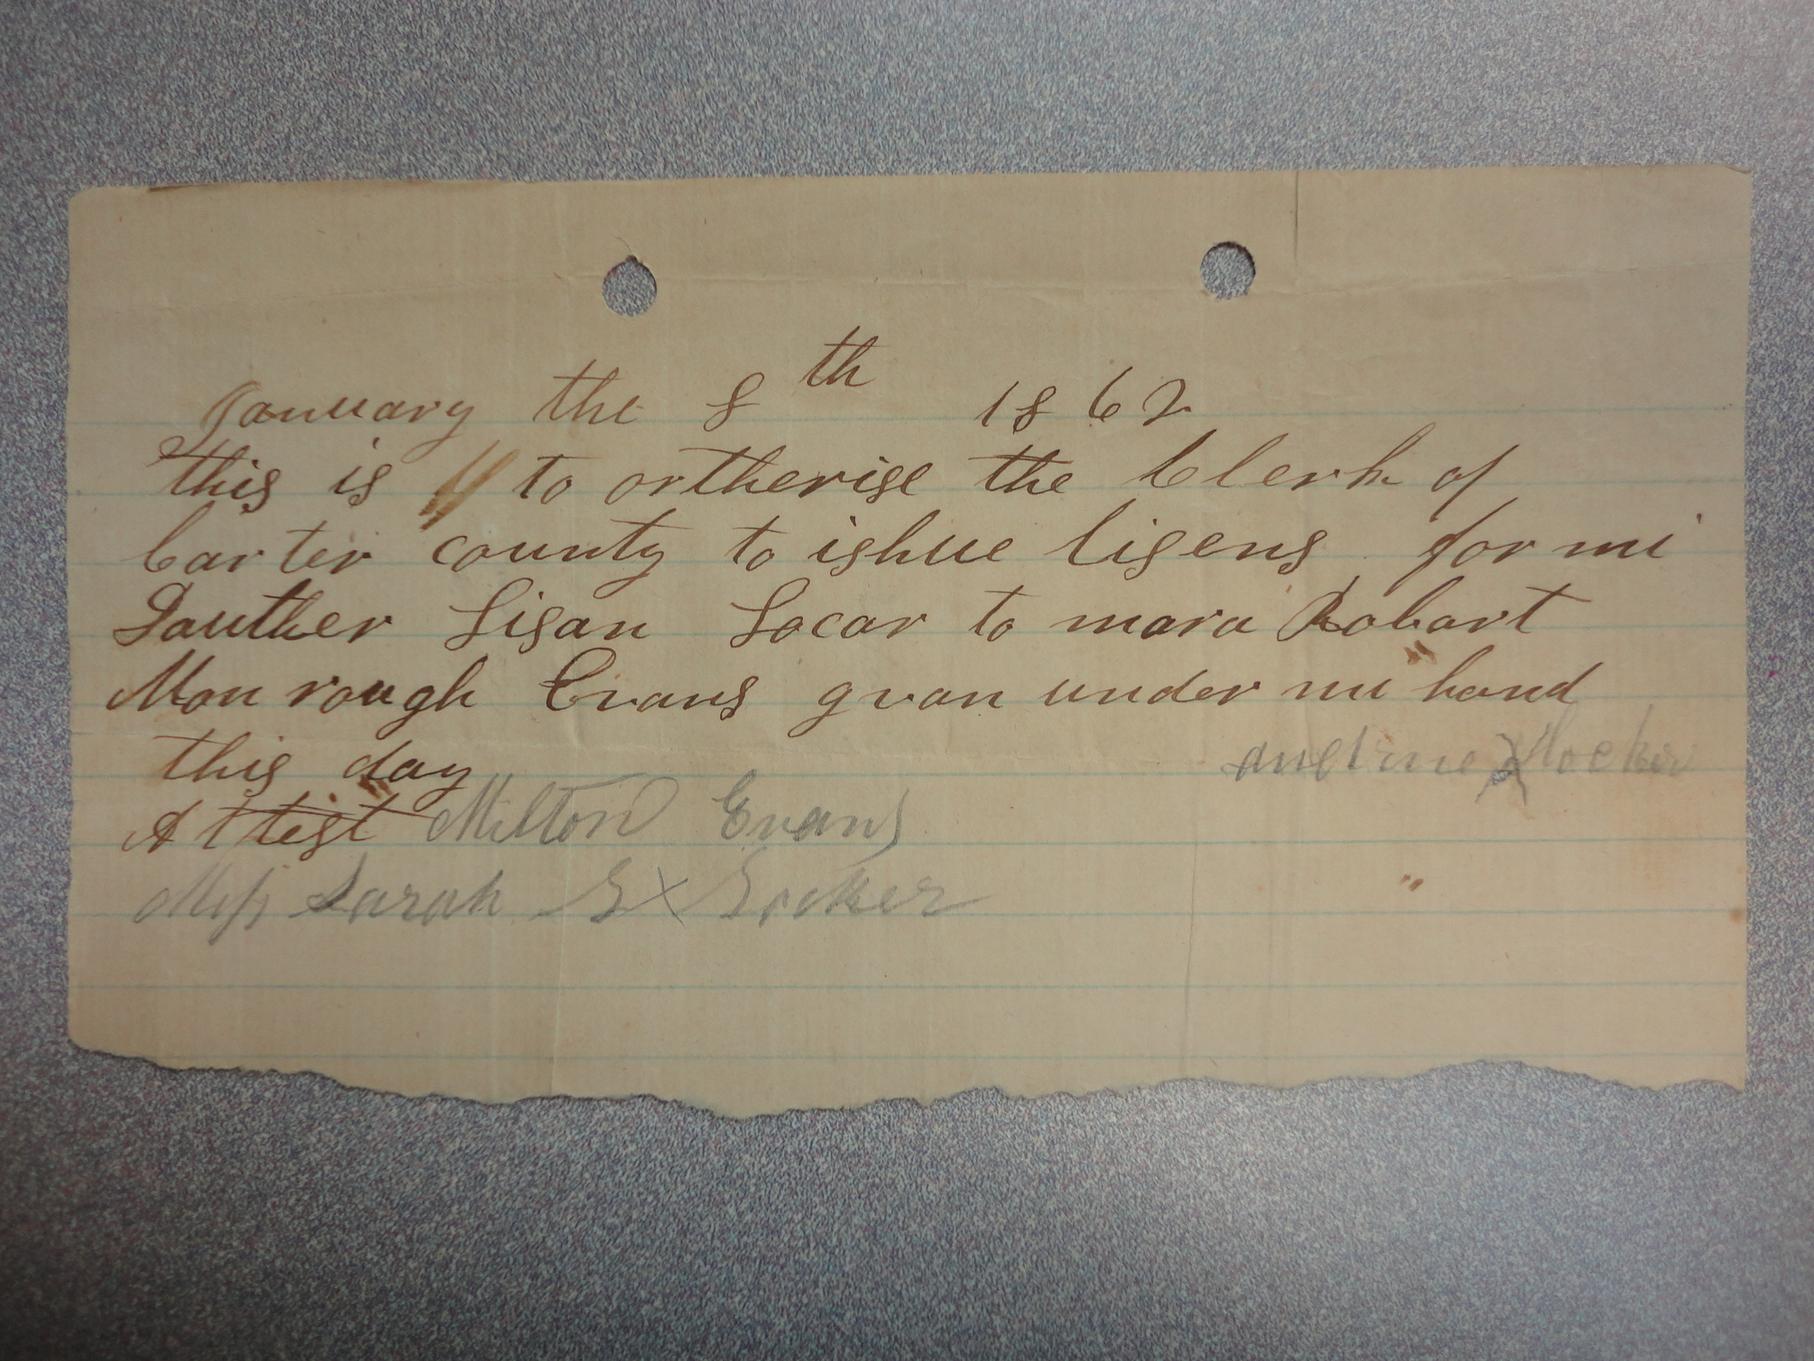 January the 8th 1862
this is to ortherise the Clerk of
Carter county to ishue lisens for mi
Dauther Sisan Socar to mara Robart
Monrough Evans gvan under mi hand
this day
X
Attest Milton Evans
Miss Sarah S X Socker